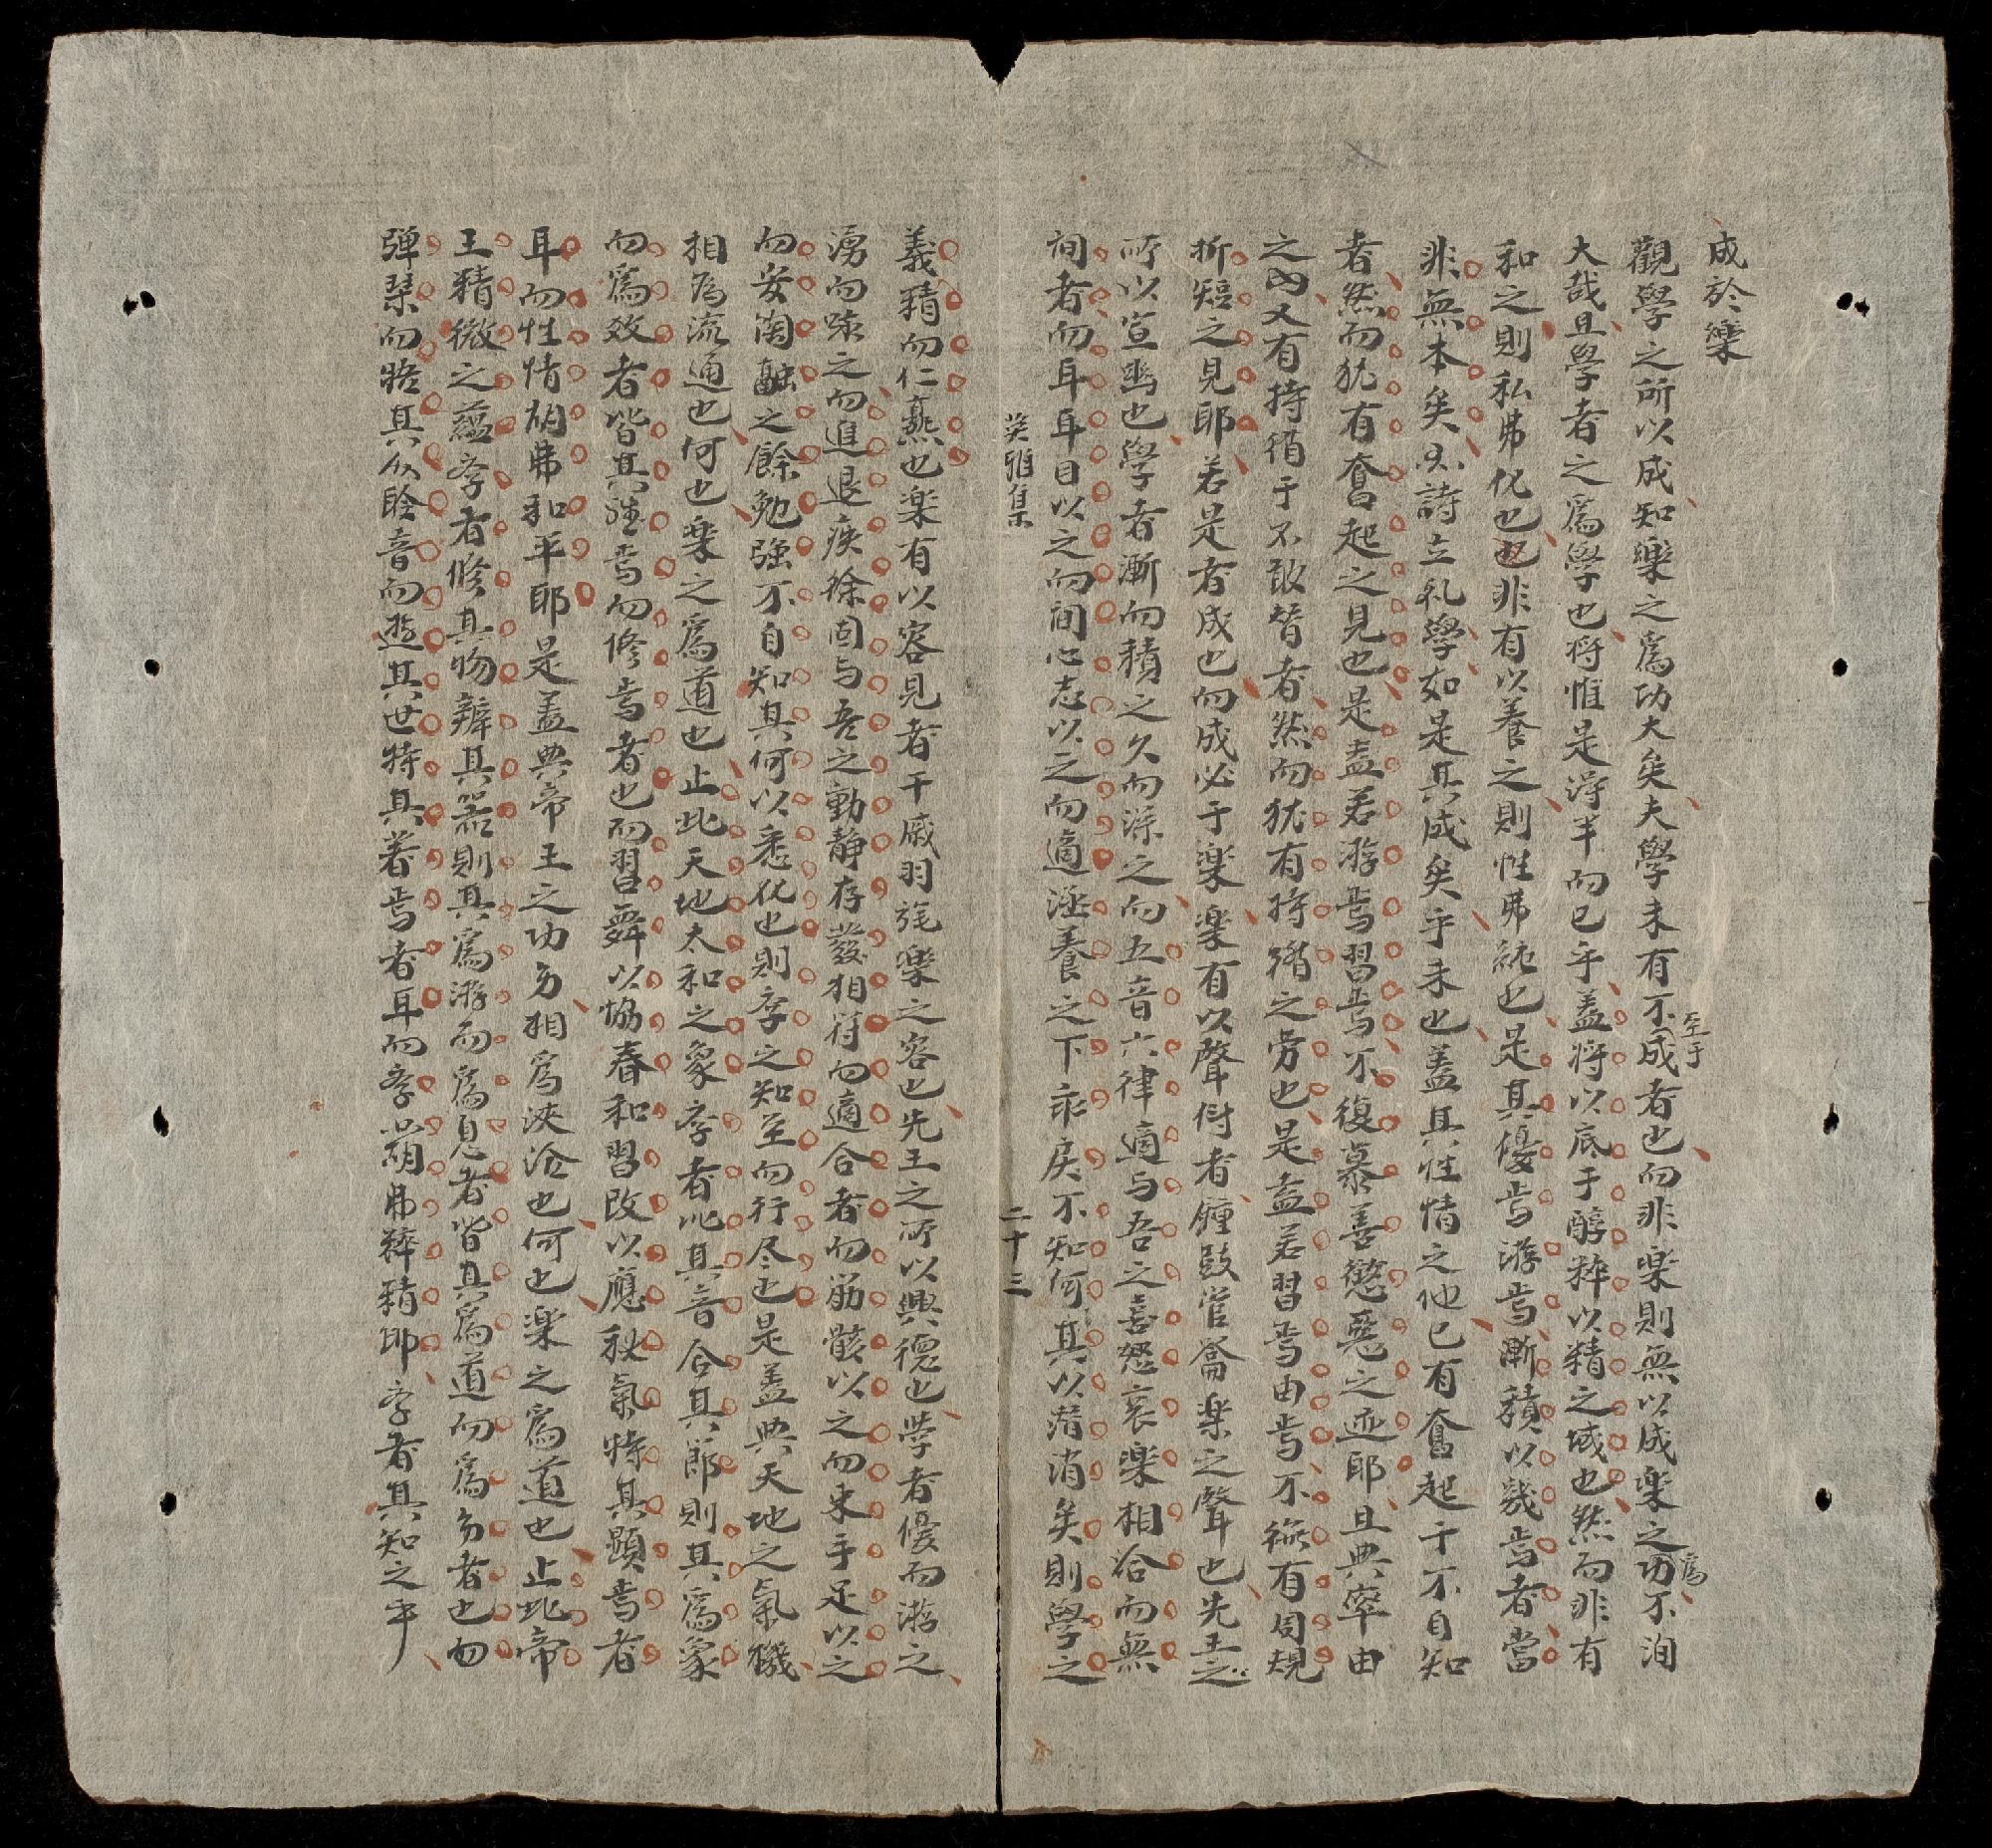 成於樂
觀學之所以成知樂之爲功大矣夫學未有不至于成者也而非楽則無以成楽之爲功不洵
大哉且學者之爲學也将惟是淂半而已乎盖将以底于醇粹以精之域也然而非有
和之則私弗化也非有以養之則性弗純也是其優焉游焉漸積以幾焉者當
非無本矣興詩立礼學如是其成矣乎未也盖其性情之他已有奮起于不自知
者然而犹有奮起之見也是盖若游焉習焉不復慕善慾惡之迹耶且典率由
之内又有持循于不敢替者然而犹有持循之劳也是盖若習焉由焉不復有周規
折矩之見耶若是者成也而成必于楽楽有以聲传者鍾鼓管龠楽之聲也先王之
所以宣幽也學者漸而積之久而深之而五音六律適与吾之喜怒哀楽相合而無
间者而耳耳目以之而间心志以之而適涵養之下乖戾不知何其以潛消矣則學之
英雅集
二十三
義精而仁熟也楽有以容見者干戚羽旄樂之容也先王之所以興德也學者優而游之
湧而咏之而進退疾徐固与吾之動静存發相符而適合者而筋骸以之而束手足以之
而安陶融之餘勉强不自知其何以悉化也則李之知至而行尽也是盖典天地之氣機
相為流通也何也楽之爲道也止此天地太和之象李者比其音合其節則其爲象
而爲效者皆其继焉而修焉者也而習舞以恊春和習政以應秋氣特其顕焉者
耳而性情胡弗和平耶是盖典帝王之功多相爲浹洽也何也楽之爲道也止此帝
王精微之蕴李者修其物辨其器則其爲游而爲息者皆其爲道而爲多者也而
弹琴而悟其人聆音而遊其世特其著焉者耳而李蒴弗粹精耶李者其知之乎